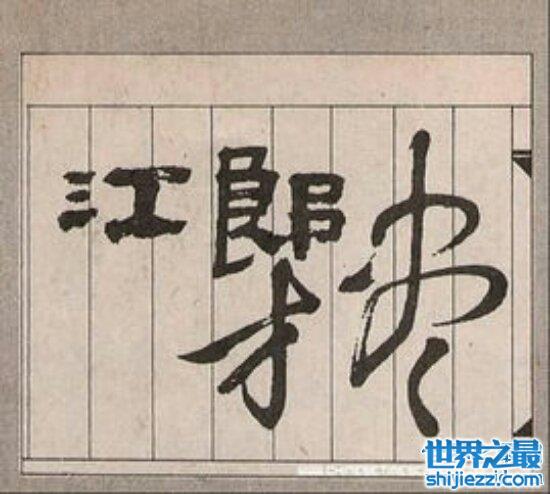 江郎才尽
世界之最
shijiezzi.com